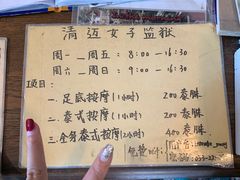 清迈女子监狱
周一、周五：8:00—16:30
周六、周日：9:00—16:30
项目：
一.足底按摩(1小时) 200泰铢
二.泰式按摩(1小时) 200泰铢
三.全身泰式按摩(2小时) 400泰铢
免费